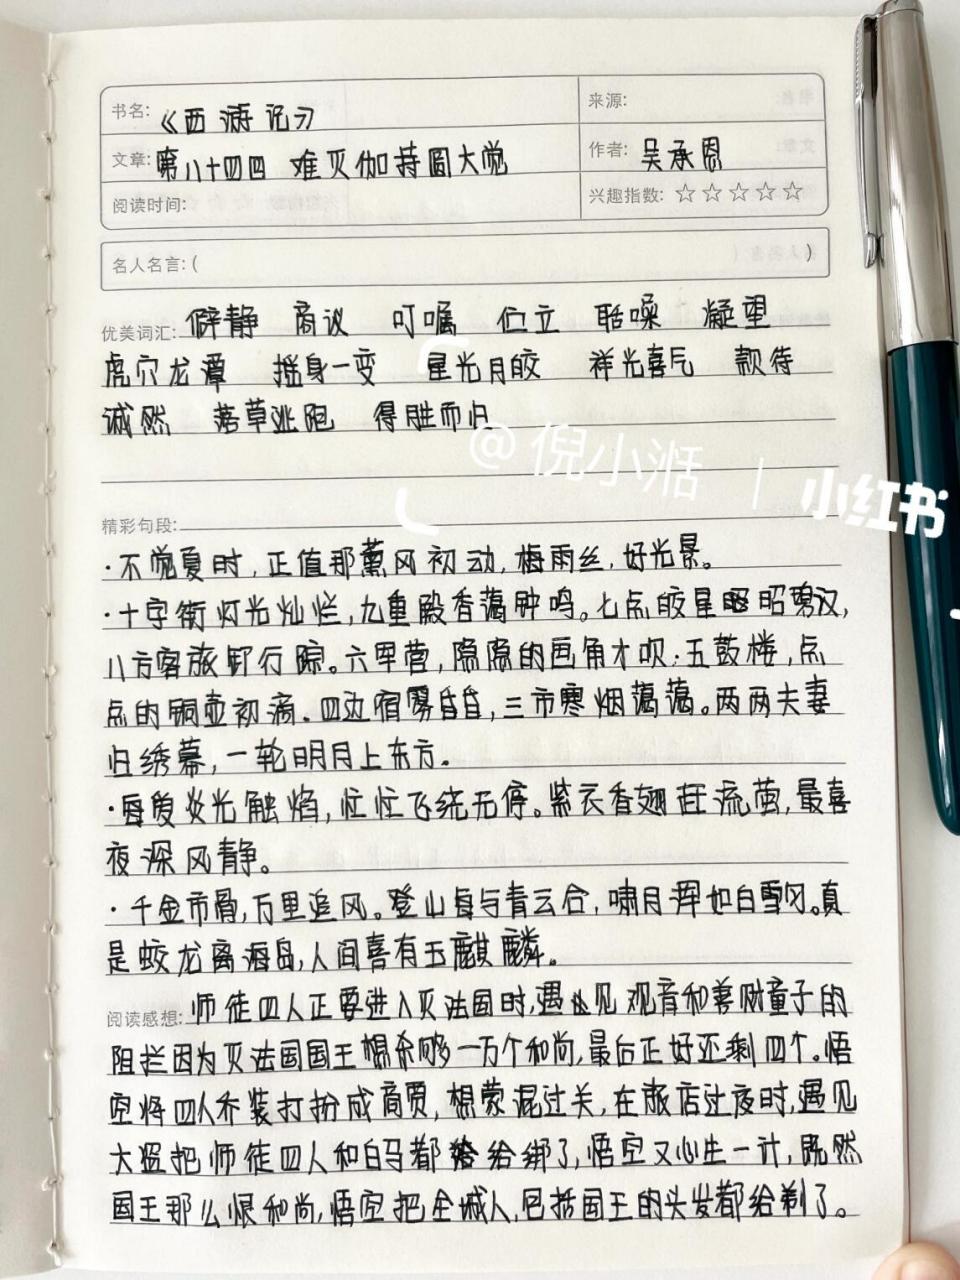 书名:《西游记》
来源:
文章:第八十四回 难灭伽持圆大觉
作者: 吴承恩
阅读时间:
兴趣指数: ☆☆☆☆☆
名人名言: ( )
优美词汇: 僻静 商议 叮嘱 伫立 聒噪 凝望
虎穴龙潭 摇身一变 星光月皎 祥光喜气 款待
诚然 落草逃跑 得胜而归
@倪小湉 | 小红书
精彩句段:
·不觉夏时,正值那薰风初动,梅雨丝,好光景。
·十字街灯光灿烂,九重殿香蔼钟鸣。七点皎星昭碧汉,
八方客旅卸行踪。六军营,隐隐的画角才吹;五鼓楼,点
点的铜壶初滴。四边宿雾昏昏,三市寒烟蔼蔼。两两夫妻
归绣幕,一轮明月上东方。
·每度炎光触焰,忙忙飞绕无停。紫衣香翅赶流萤,最喜
夜深风静。
·千金市骨,万里追风。登山每与青云合,啸月浑如白雪匀。真
是蛟龙离海岛,人间喜有玉麒麟。
阅读感想: 师徒四人正要进入灭法国时,遇见观音和善财童子的
阻拦因为灭法国国王想杀够一万个和尚,最后正好还剩四个。悟
空将四人乔装打扮成商贾,想蒙混过关,在旅店过夜时,遇见
大盗把师徒四人和白马都给绑了,悟空又心生一计,既然
国王那么恨和尚,悟空把全城人,包括国王的头发都给剃了。